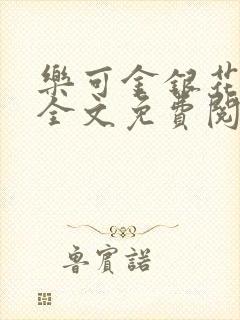 樂可金銀花
全文免費閱
魯賓諾